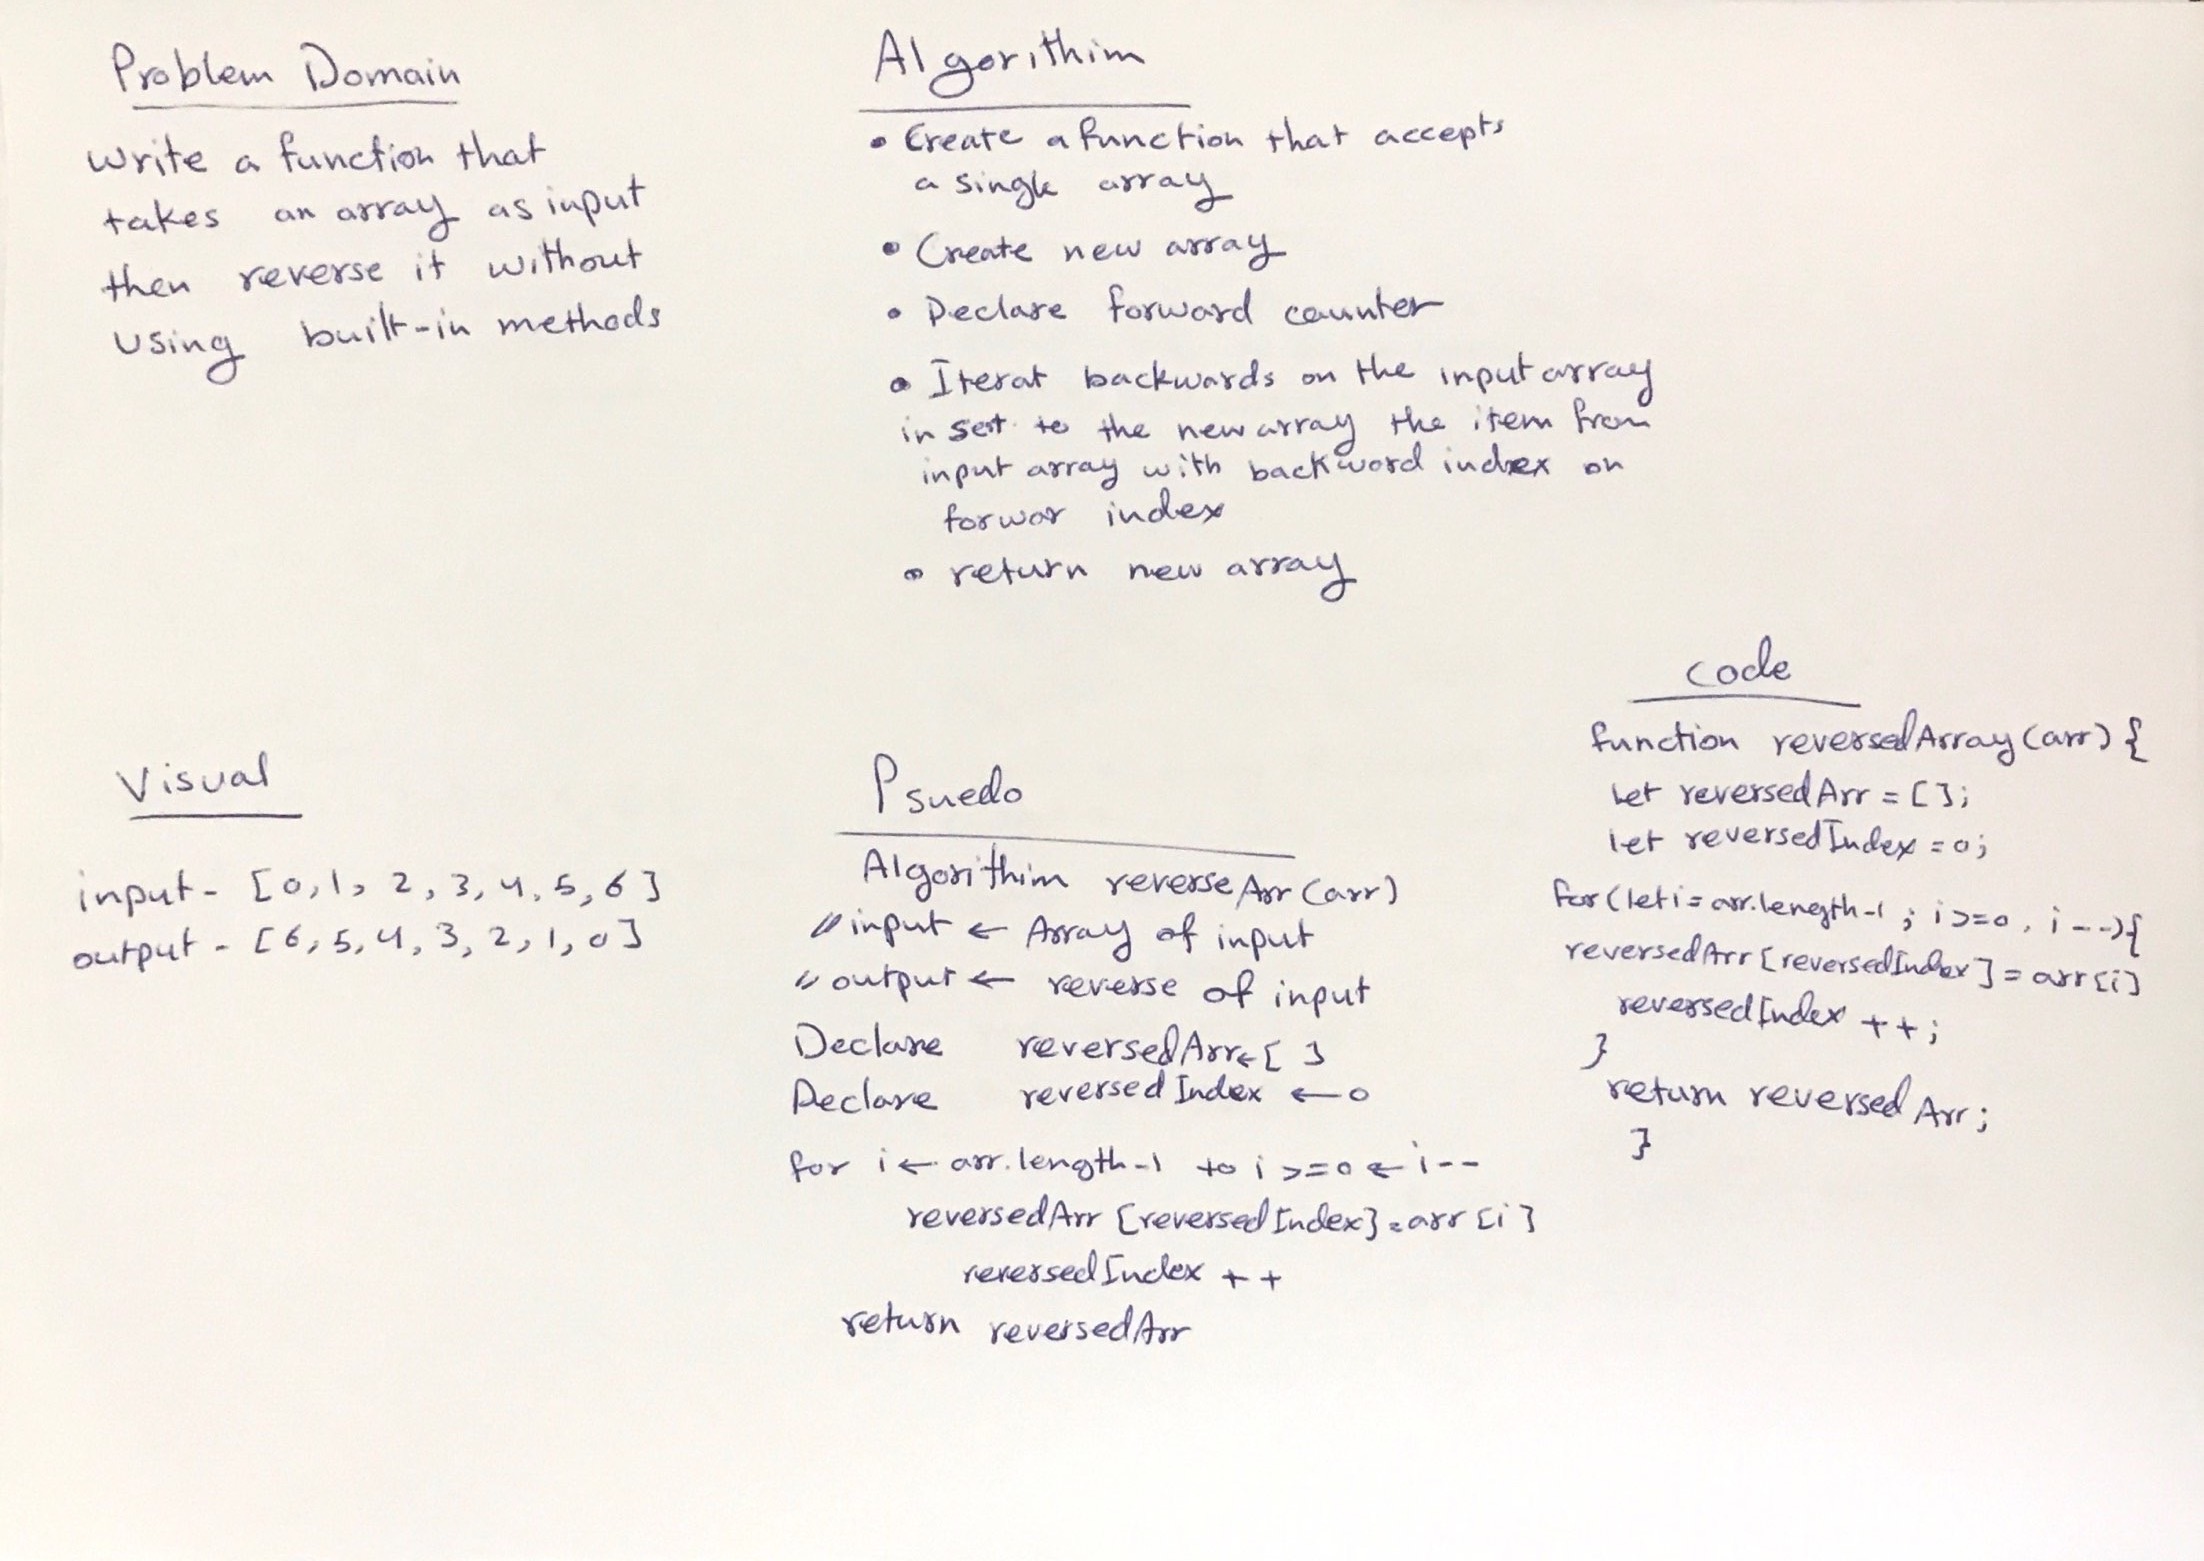 Problem Domain
write a function that
takes an array as input
then reverse it without
using built-in methods
Algorithim
• Create a function that accepts
a single array
• Create new array
• Declare forward counter
• Iterat backwards on the input array
insert to the new array the item from
input array with backword index on
forwar index
• return new array
Visual
input - [0, 1, 2, 3, 4, 5, 6]
output - [6, 5, 4, 3, 2, 1, 0]
Psuedo
Algorithim reverseArr (arr)
// input ← Array of input
// output ← reverse of input
Declare reversedArr ← [ ]
Declare reversedIndex ← 0
for i ← arr.length-1 to i >=0 ← i--
reversedArr [reversedIndex] = arr [i]
reversedIndex ++
return reversedArr
code
function reversedArray (arr) {
let reversedArr = [];
let reversedIndex = 0;
for (let i = arr.length-1 ; i >=0 , i --){
reversedArr [reversedIndex] = arr [i]
reversedIndex ++;
}
return reversedArr;
}